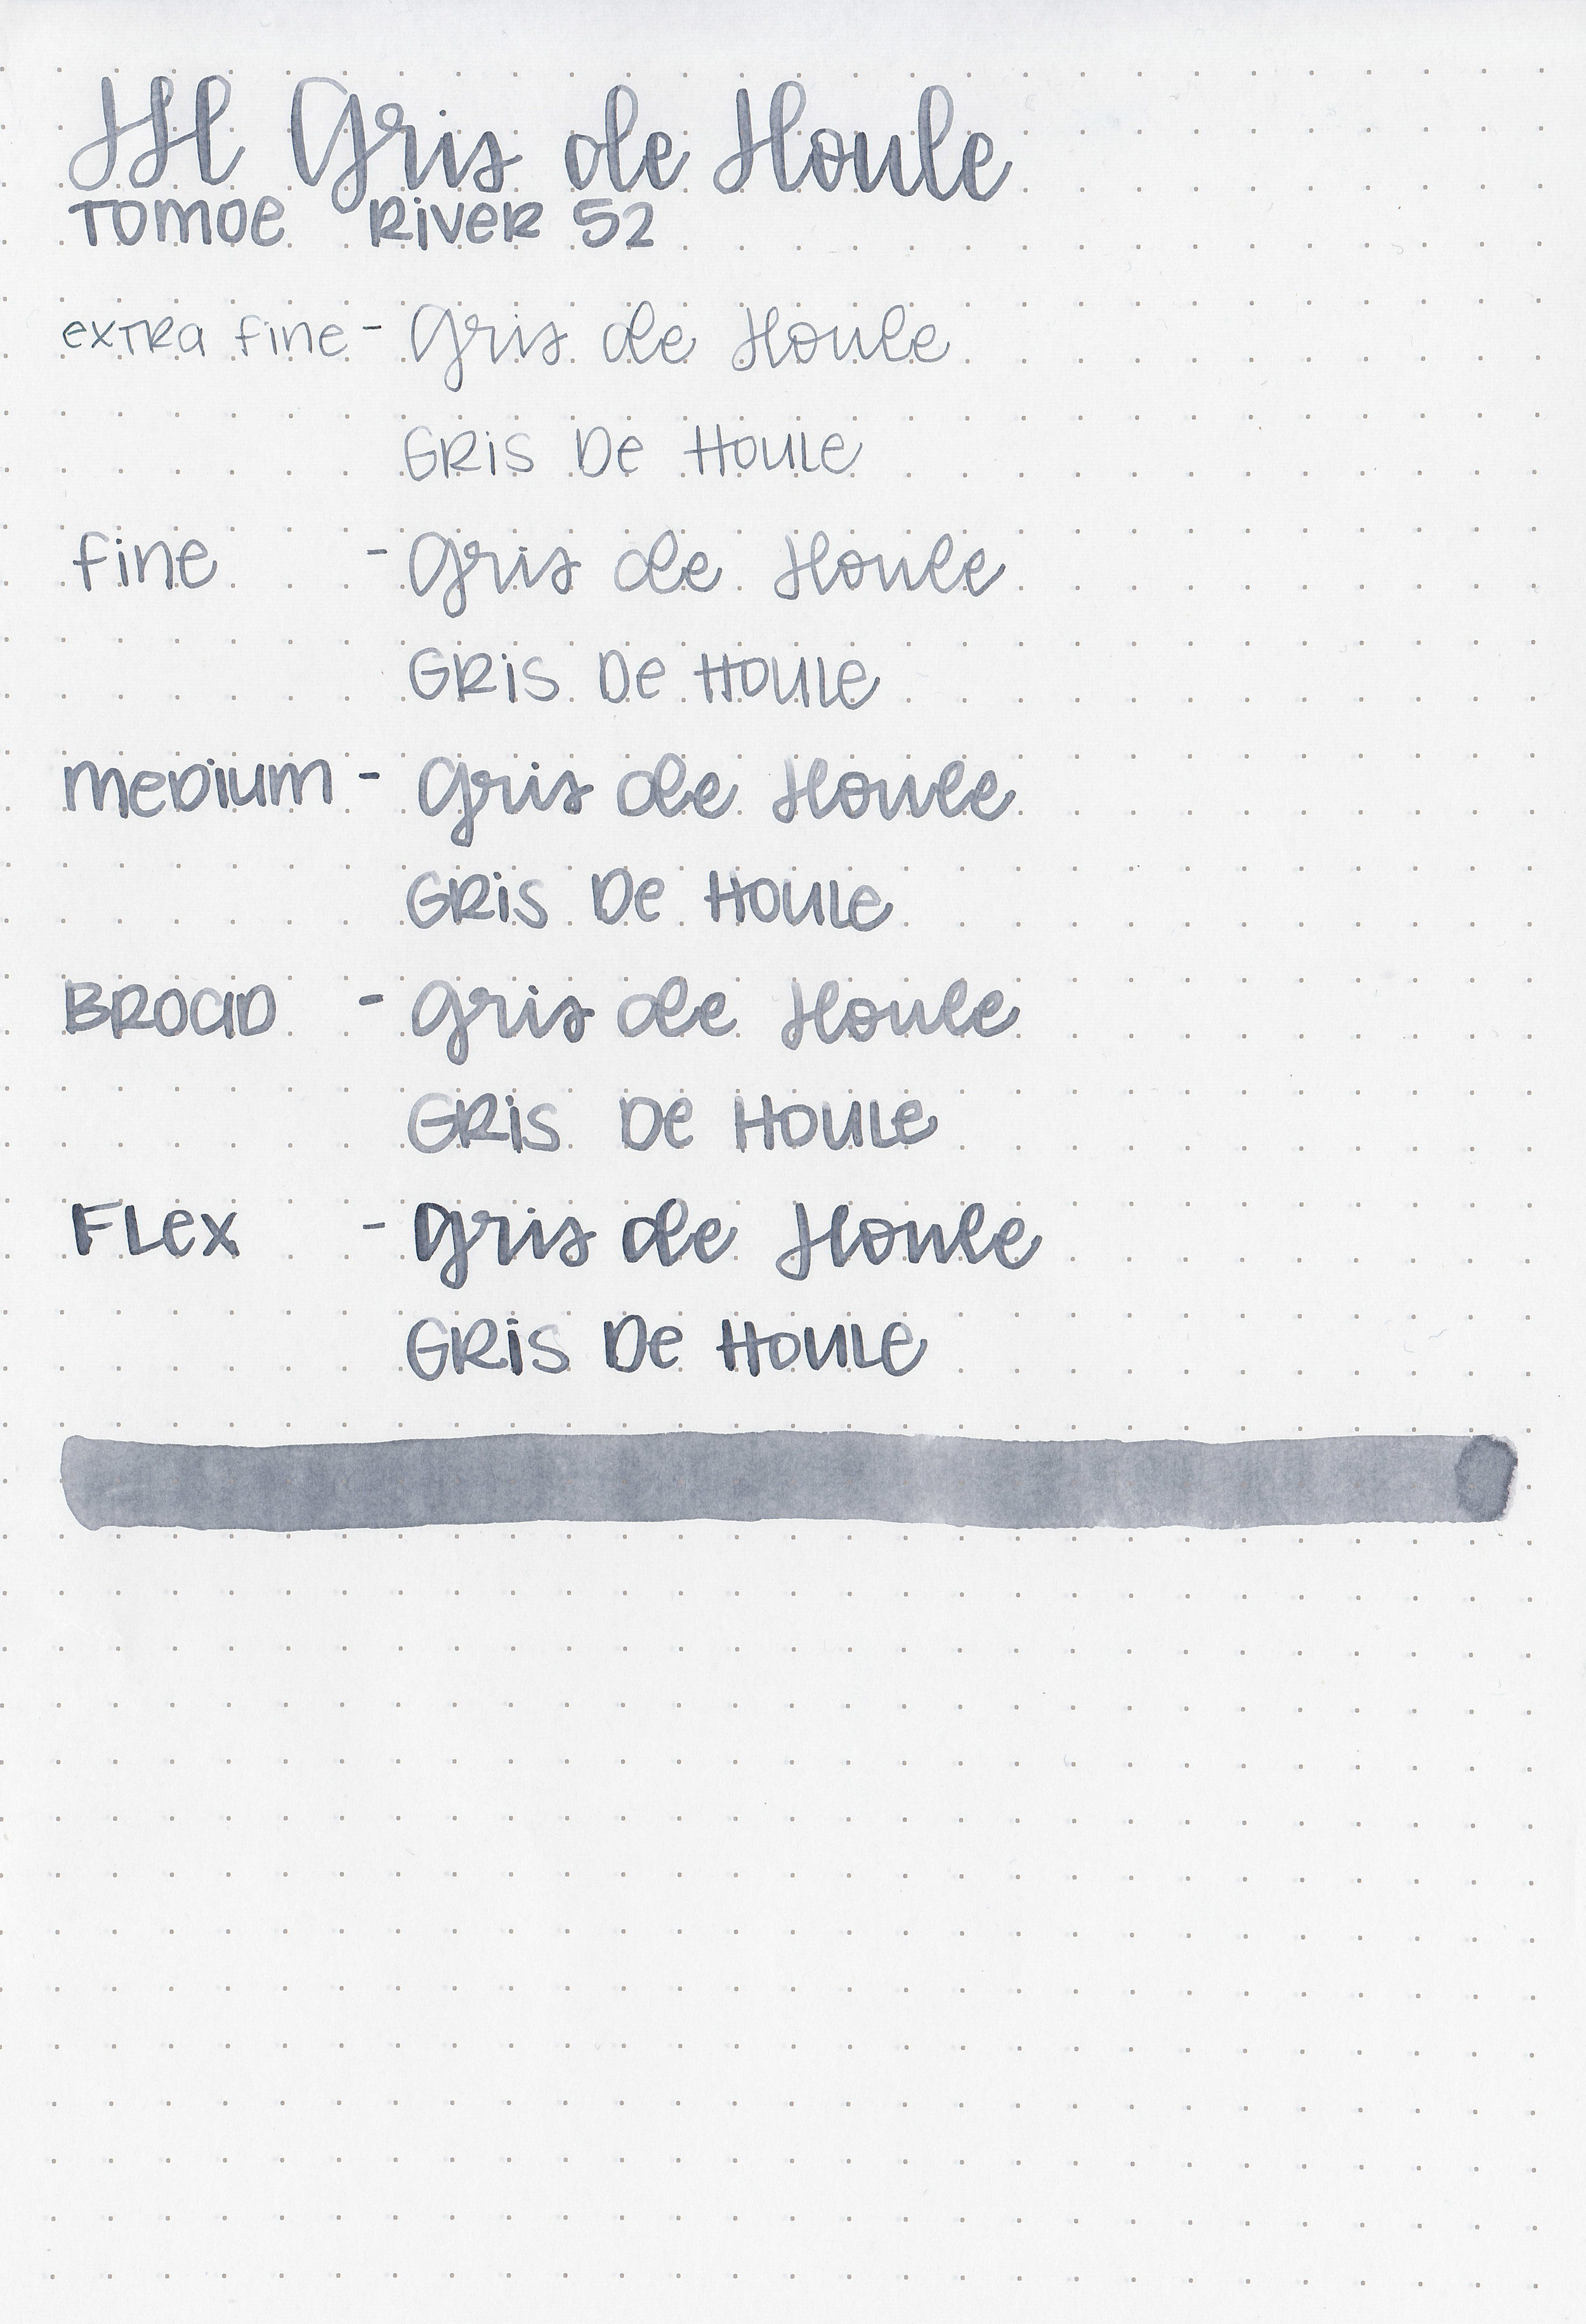 JH Gris de Houle
TOMOE RIVER 52
extra fine - Gris de Houle
GRIS De HOULe
fine - Gris de Houle
GRIS De HOULe
meDium - Gris de Houle
GRIS De HOULe
BROAD - Gris de Houle
GRIS De HOULe
FLex - Gris de Houle
GRIS De HOULe